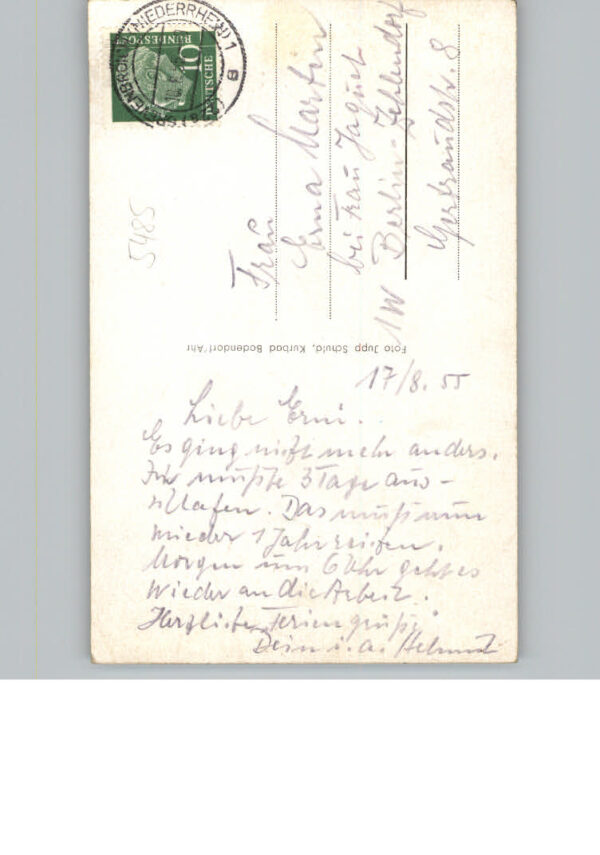 (NIEDERRHEIN) 1
B
DEUTSCHE
BUNDESPOST
10
5485
Frau
Erna Martin
bei Frau Jaquet
1 W Berlin-Zehlendorf
Gertraudstr. 8
Foto Jupp Schuld, Kurbad Bodendorf/Ahr
17/8. 55
Liebe Erni.
Es ging nicht mehr anders.
Ich mußte 3 Tage aus-
schlafen. Das muß nun
wieder 1 Jahr reichen.
Morgen um 6 Uhr geht es
wieder an die Arbeit.
Herzliche Feriengrüße
Dein i. a. Helmut